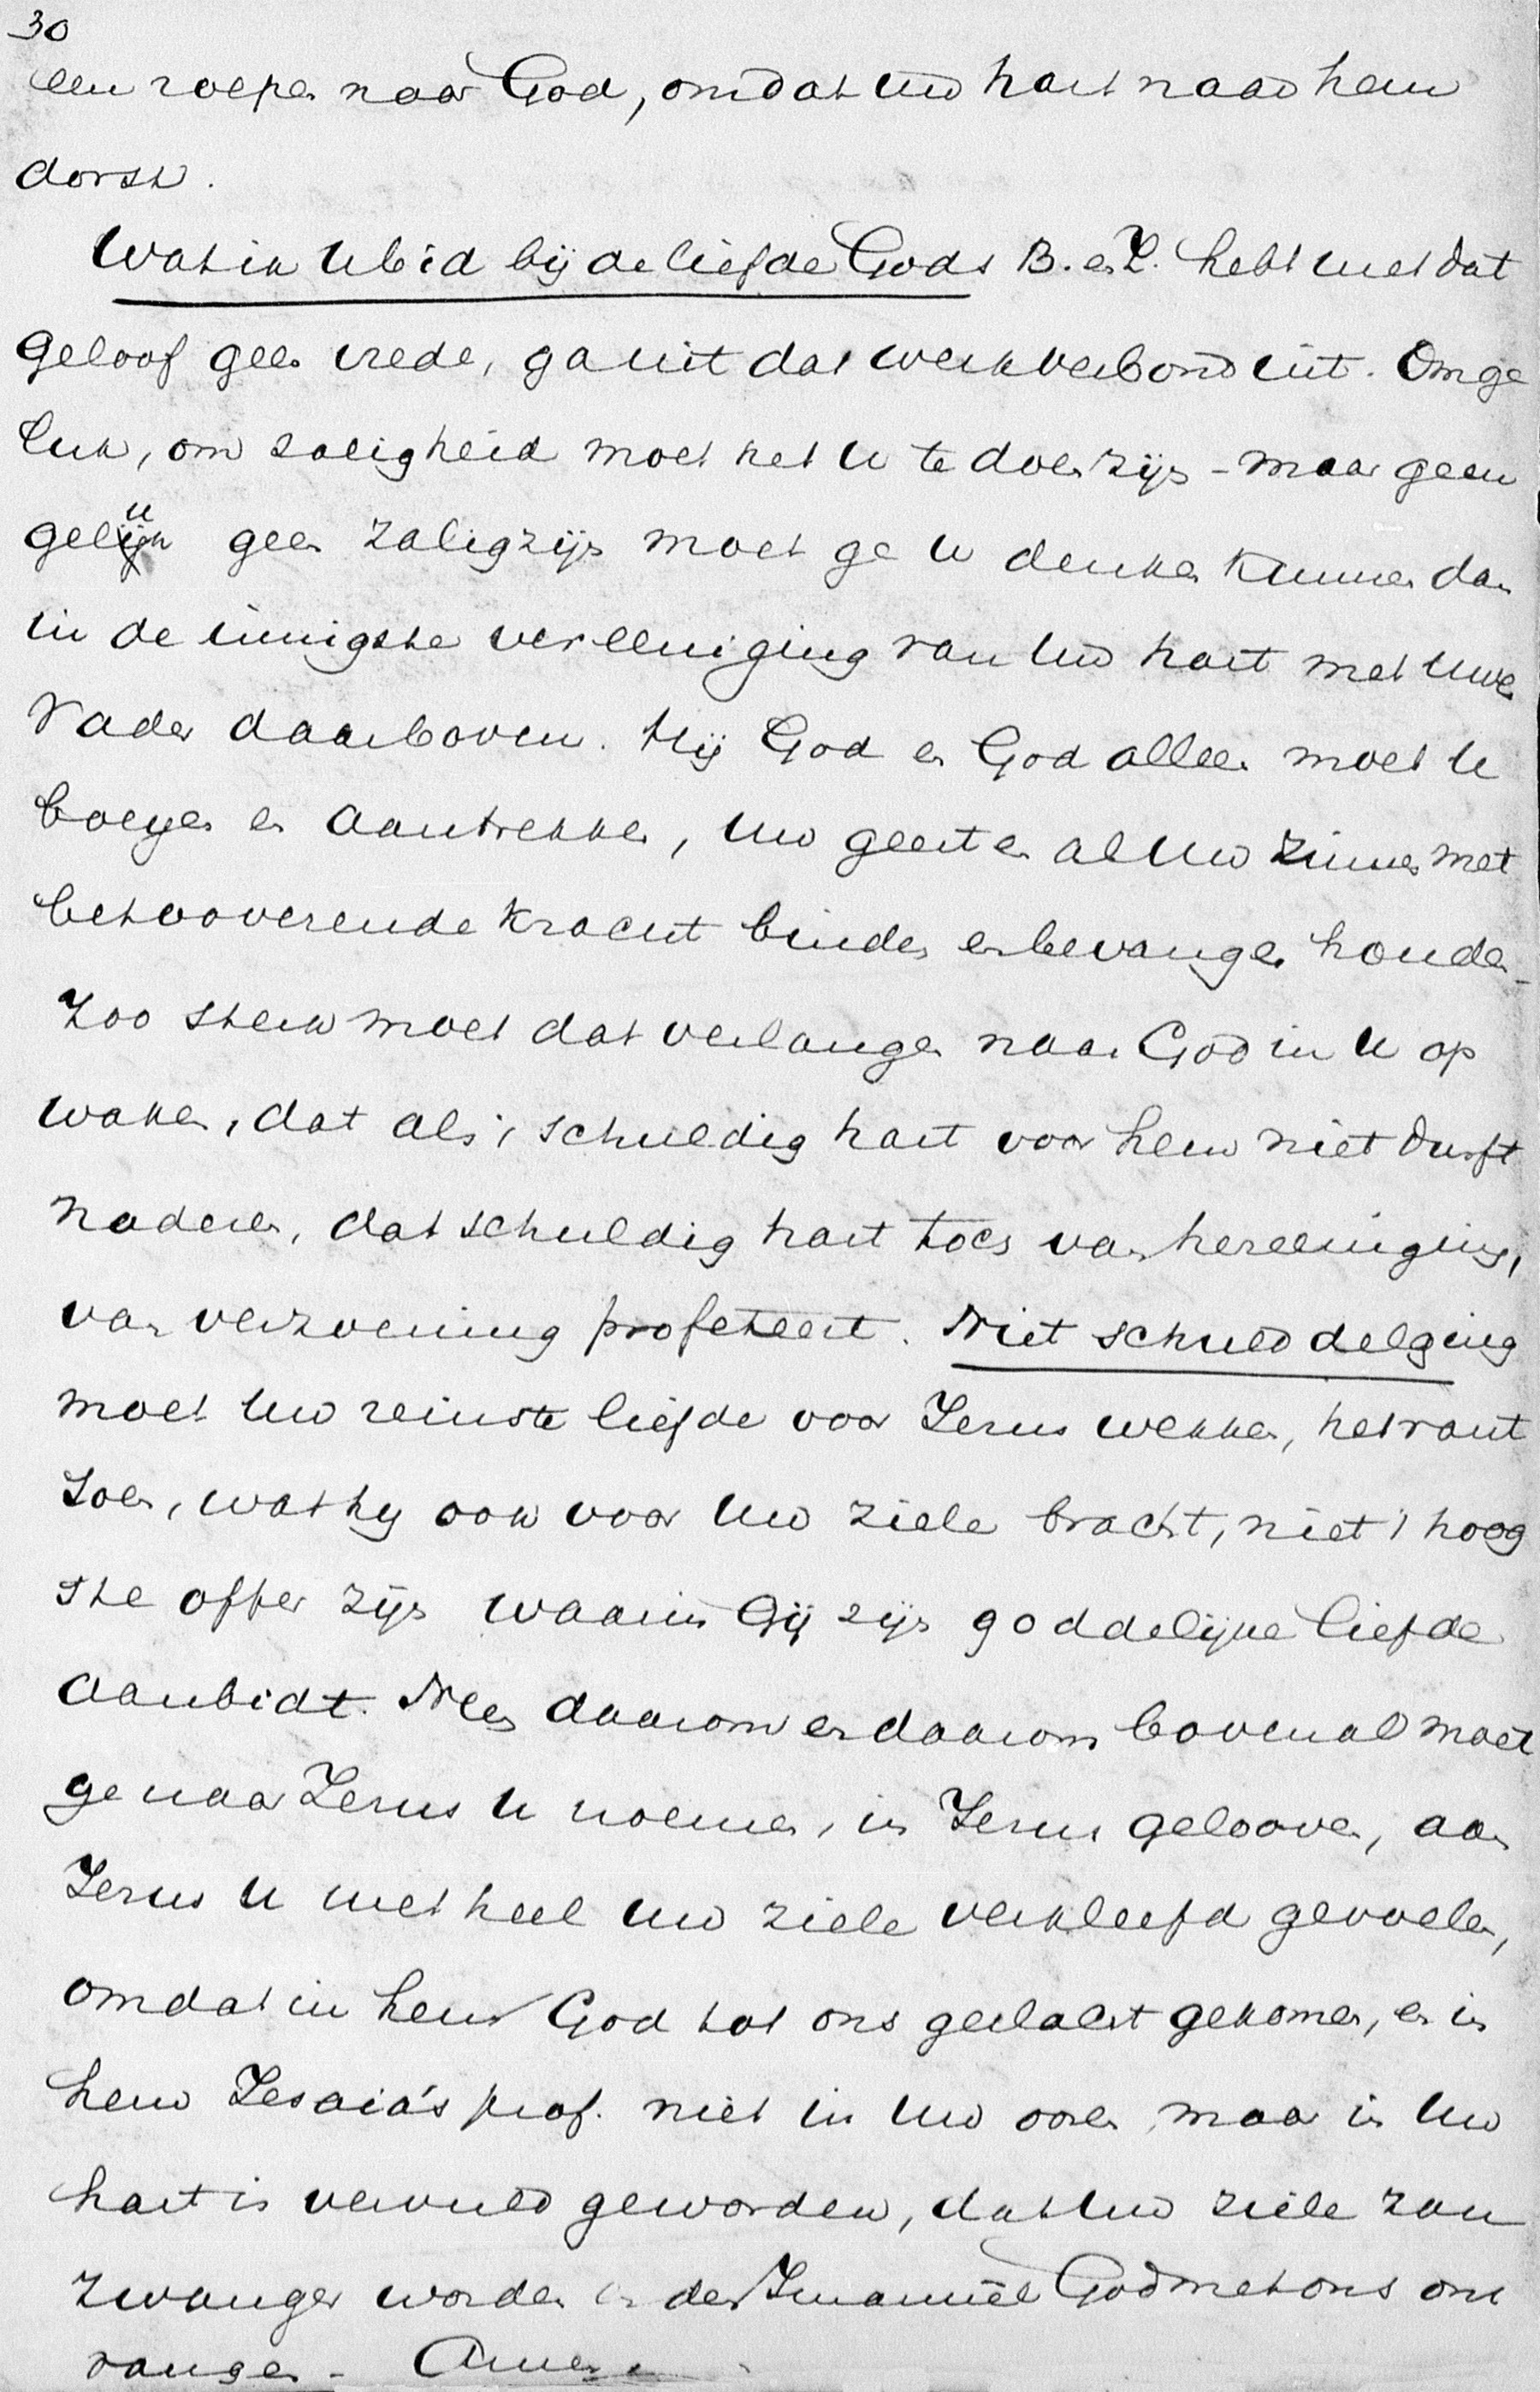 30
een roepen naar God, omdat Uw hart naar hem
dorst.
Wat ik U bid bij de liefde Gods B. en Z. hebt met dat
geloof geen vrede, ga uit dat werkverbond uit. Om ge
luk, om zaligheid moet het U te doen zijn – maar geen
geluk geen zaligzijn moet ge U denken kunnen dan
in de innigste vereeniging van Uw hart met Uwen
Vader daarboven. Hij God en God alleen moet U
boeyen en aantrekken, Uw geest en al Uw zinnen met
betooverende kracht binden en bevangen houden –
Zoo sterk moet dat verlangen naar God in U op
waken, dat als 't schuldig hart voor hem niet durft
naderen, dat schuldig hart toch van hereeniging,
van verzoening profeteert. Niet schulddelging
moet Uw reinste liefde voor Jezus wekken, het rant
soen, wat hij ook voor Uw ziele bracht, niet 't hoog
ste offer zijn waarin Gij zijn goddelijke liefde
aanbidt. Neen daarom en daarom bovenal moet
ge naar Jezus U noemen, in Jezus gelooven, aan
Jezus U met heel Uw ziele verkleefd gevoelen,
omdat in hem God tot ons geslacht gekomen, en in
hem Jesaia's prof. niet in Uw ooren maar in Uw
hart is vervuld geworden, dat Uw ziele zou
zwanger worden en den Immanuël God met ons ont
vangen – Amen.